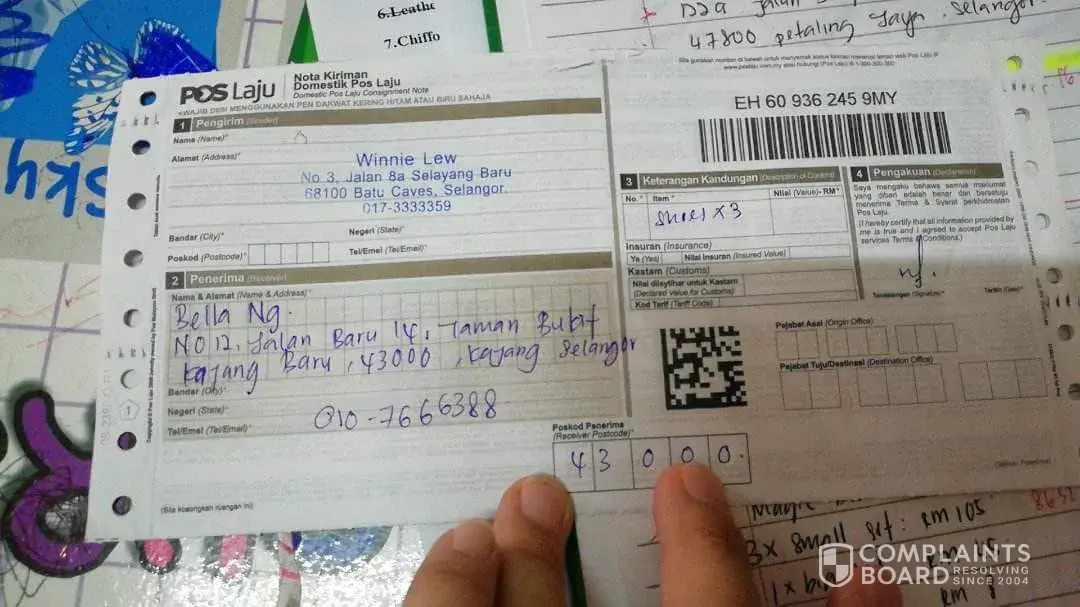 6.Leathe
7.Chiffo
47800 petaling Jaya. Selangor
sky
POS Laju
Nota Kiriman
Domestik Pos Laju
Domestic Pos Laju Consignment Note
*WAJIB DIISI MENGGUNAKAN PEN DAKWAT KERING HITAM ATAU BIRU SAHAJA
Sila gunakan nombor di bawah untuk menyemak status kiriman menerusi laman web Pos Laju di
EH 60 936 245 9MY
1 Pengirim (Sender)
Nama (Name)*
Alamat (Address)*
Winnie Lew
No 3, Jalan 8a Selayang Baru
68100 Batu Caves, Selangor.
017-3333359
Bandar (City)*
Negeri (State)*
Poskod (Postcode)*
Tel/Emel (Tel/Email)*
2 Penerima (Receiver)
Nama & Alamat (Name & Address)*
Bella Ng.
NO 12, Jalan Baru 14, Taman Bukit
Kajang Baru, 43000, Kajang Selangor
Bandar (City)*
Negeri (State)*
Tel/Emel (Tel/Email)*
010-7666388
Poskod Penerima
(Receiver Postcode)*
43000.
(Sila kosongkan ruangan ini)
3 Keterangan Kandungan (Description of Content)
No.* Item* Nilai (Value)- RM*
shoes x 3
Insuran (Insurance)
Ya (Yes) Nilai Insuran (Insured Value)
Kastam (Customs)
Nilai diisytihar untuk Kastam
(Declared Value for Customs)
Kod Tarif (Tariff Code)
4 Pengakuan (Declaration)
Saya mengaku bahawa semua maklumat
yang diberi adalah benar dan bersetuju
menerima Terma & Syarat perkhidmatan
Pos Laju.
(I hereby certify that all information provided by
me is true and I agreed to accept Pos Laju
services Terms & Conditions.)
Tandatangan (Signature)*
Tarikh (Date)*
Pejabat Asal (Origin Office)
Pejabat Tuju/Destinasi (Destination Office)
3 x small set : RM 105
1 x
RM
COMPLAINTS
BOARD
RESOLVING
SINCE 2004